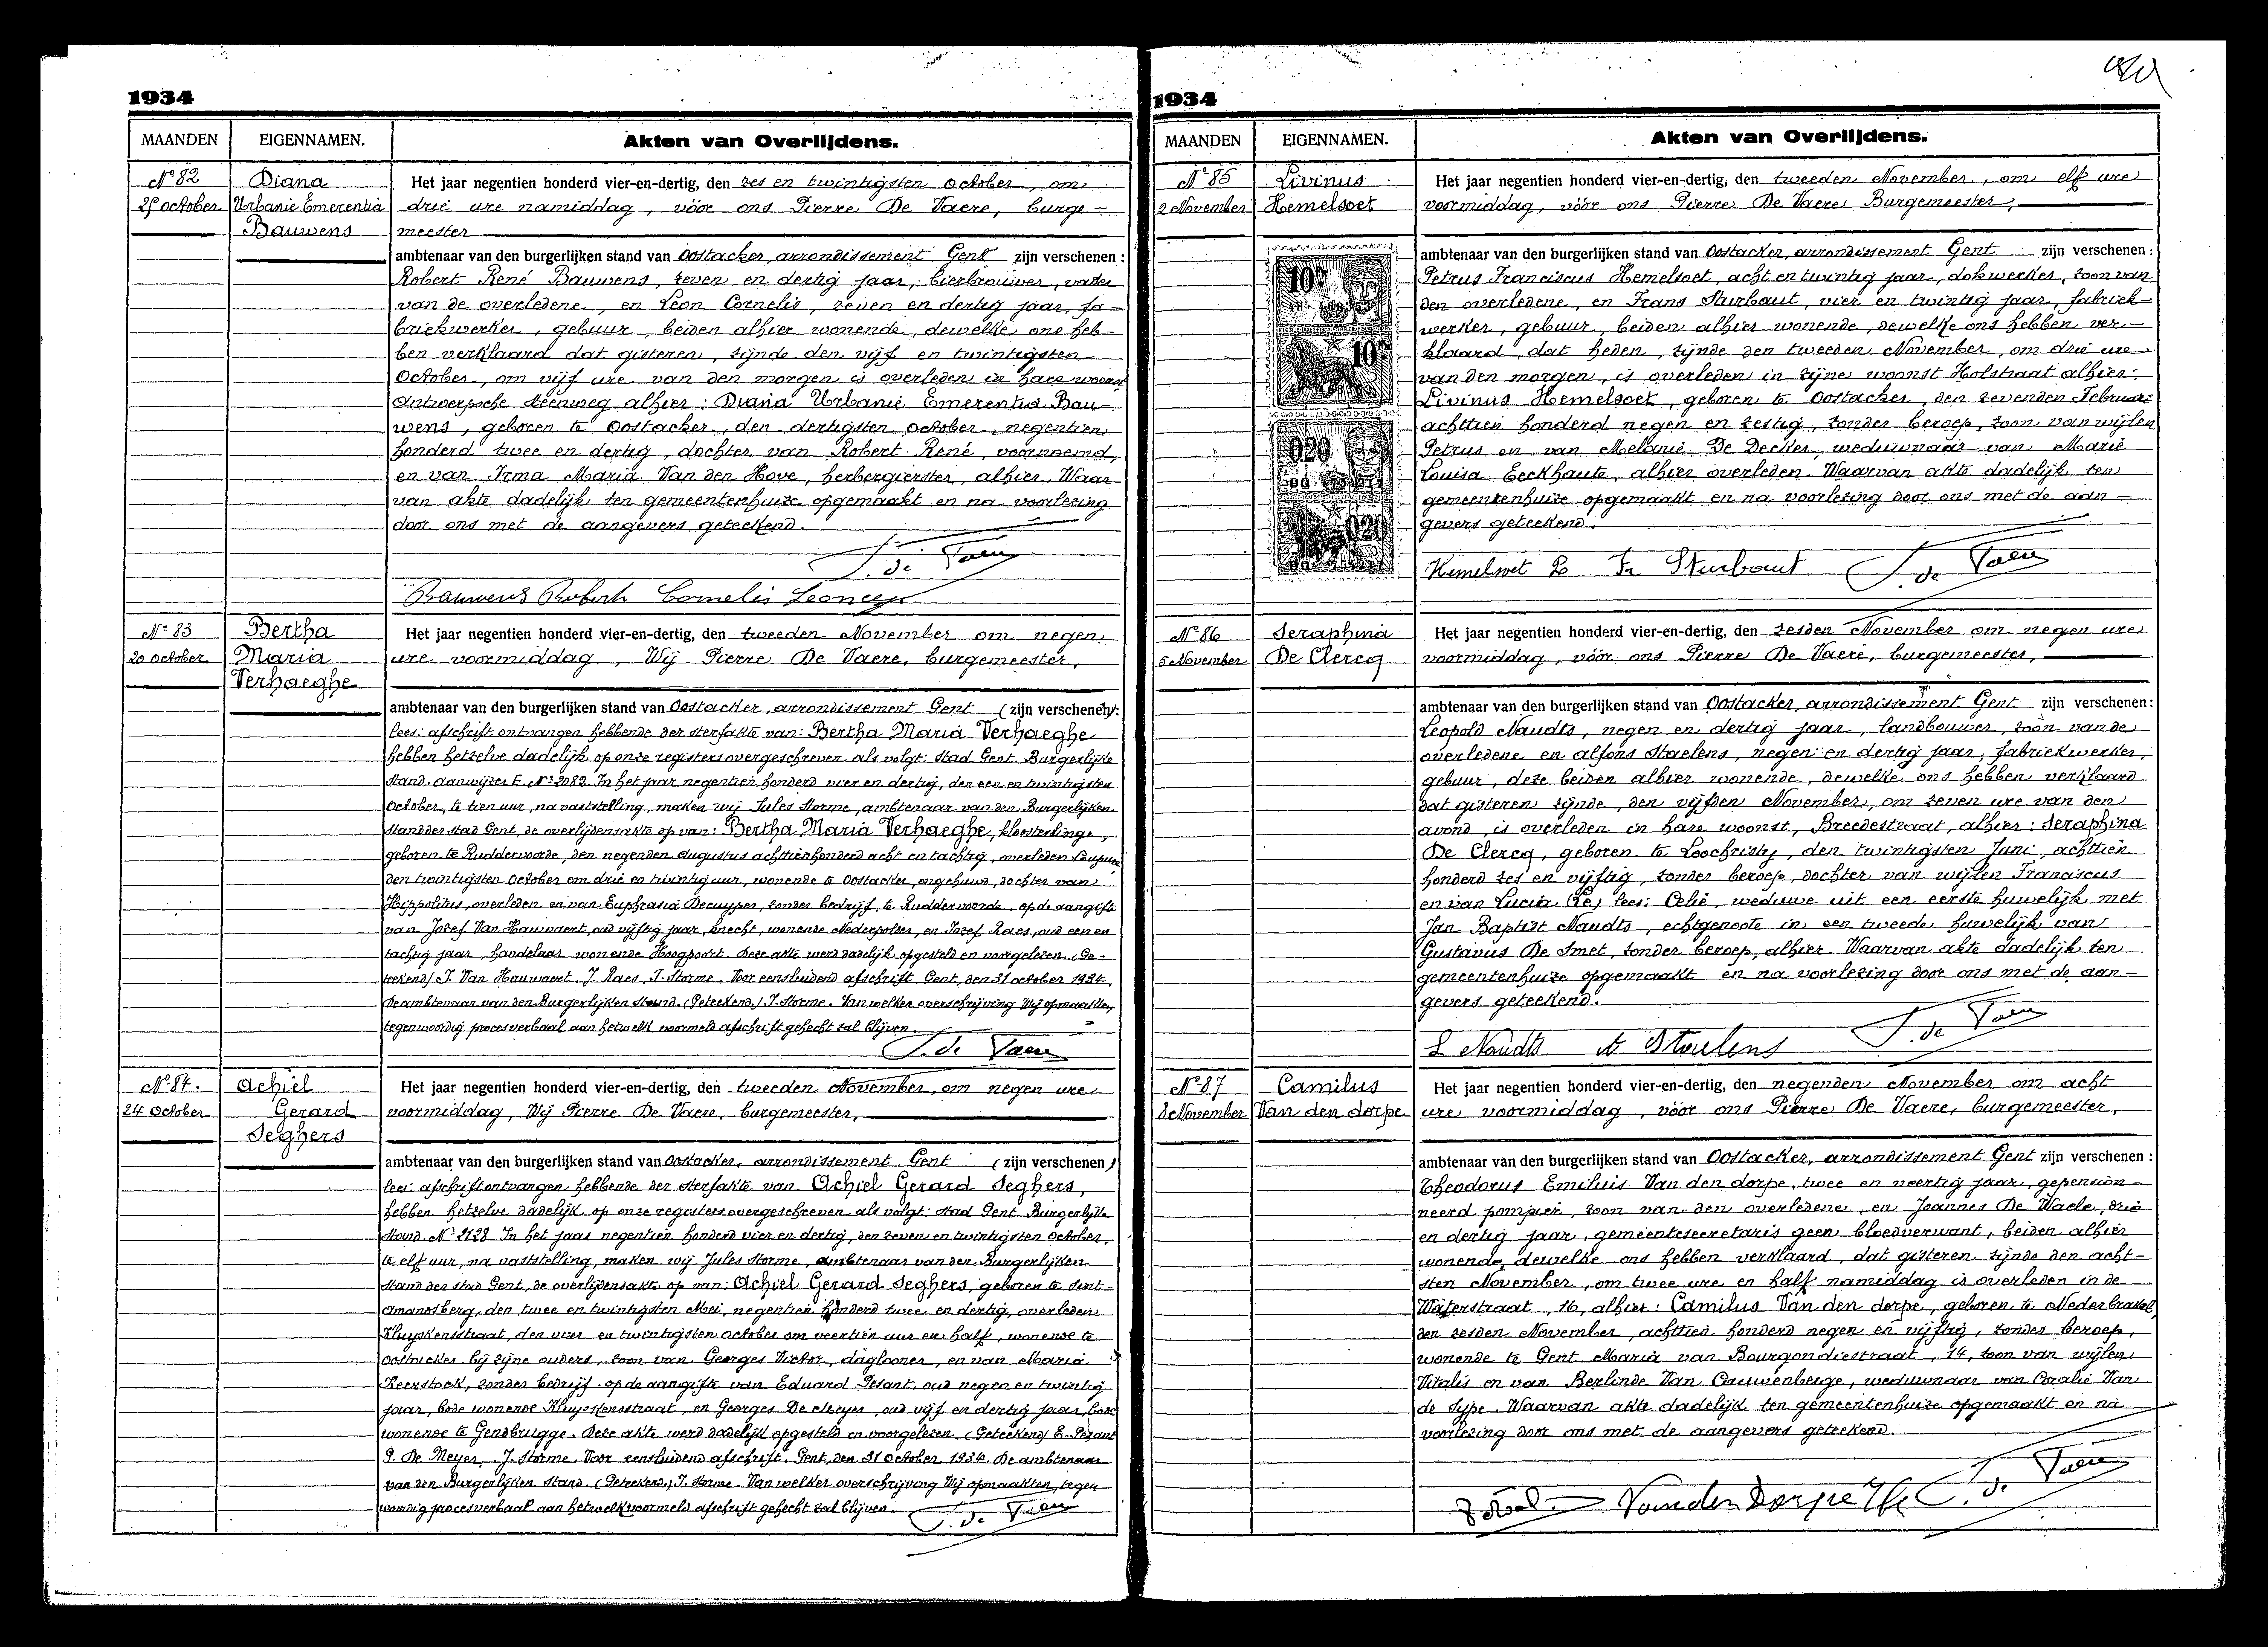 1934
MAANDEN
EIGENNAMEN.
Akten van Overlijdens.
Nº 82
25 October
Diana
Urbanie Emerentia
Bauwens
Het jaar negentien honderd vier-en-dertig, den zes en twintigsten October, om
drie ure namiddag, vóór ons Pierre De Vaere, burge-
meester
ambtenaar van den burgerlijken stand van Oostacker, arrondissement Gent zijn verschenen :
Robert René Bauwens, zeven en dertig jaar, bierbrouwer, vader
van de overledene, en Léon Cornelis, zeven en dertig jaar, fa-
briekwerker, gebuur, beiden alhier wonende, dewelke ons heb-
ben verklaard dat gisteren, zijnde den vijf en twintigsten
October, om vijf ure van den morgen is overleden in hare woonst
Antwerpsche steenweg alhier: Diana Urbanie Emerentia Bau-
wens, geboren te Oostacker, den dertigsten October, negentien
honderd twee en dertig, dochter van Robert René, voornoemd,
en van Irma Maria Van den Hove, herbergierster, alhier. Waar
van akte dadelijk ten gemeentenhuize opgemaakt en na voorlezing
door ons met de aangevers geteekend.
P. de Vaere
Bauwens Robert Cornelis Leon
Nº 83
20 October
Bertha
Maria
Verhaeghe
Het jaar negentien honderd vier-en-dertig, den tweeden November om negen
ure voormiddag, Wij Pierre De Vaere, burgemeester,
ambtenaar van den burgerlijken stand van Oostacker, arrondissement Gent (zijn verschenen):
lees: afschrift ontvangen hebbende der sterfakte van: Bertha Maria Verhaeghe
hebben hetzelve dadelijk op onze registers overgeschreven als volgt: Stad Gent. Burgerlijke
Stand. Aanwijzer E. Nº 2082. In het jaar negentien honderd vier en dertig, den een en twintigsten
October, te tien uur, na vaststelling, maken wij Jules Storme, ambtenaar van den Burgerlijken
Stand der stad Gent, de overlijdensakte op van: Bertha Maria Verhaeghe, kloosterlinge,
geboren te Ruddervoorde, den negenden Augustus achttienhonderd acht en tachtig, overleden Coupure
den twintigsten October om drie en twintig uur, wonende te Oostacker, ongehuwd, dochter van
Hippolitus, overleden en van Euphrasia Decuyper, zonder bedrijf, te Ruddervoorde, op de aangifte
van Jozef Van Hauwaert, oud vijftig jaar, knecht, wonende Nederpolder, en Jozef Raes, oud een en
tachtig jaar, handelaar wonende Hoogpoort. Deze akte werd dadelijk opgesteld en voorgelezen. (Ge-
teekend) J. Van Hauwaert. J. Raes. J. Storme. Voor eensluidend afschrift. Gent, den 31 October 1934.
De ambtenaar van den Burgerlijken Stand. (Geteekend) J. Storme. Van welker overschrijving Wij opmaakten,
tegenwoordig procesverbaal aan hetwelk voormeld afschrift gehecht zal blijven.
P. de Vaere
Nº 84.
24 October
Achiel
Gerard
Seghers
Het jaar negentien honderd vier-en-dertig, den tweeden November, om negen ure
voormiddag, Wij Pierre De Vaere, burgemeester,
ambtenaar van den burgerlijken stand van Oostacker, arrondissement Gent (zijn verschenen)
lees: afschrift ontvangen hebbende der sterfakte van Achiel Gerard Seghers,
hebben hetzelve dadelijk op onze registers overgeschreven als volgt: Stad Gent Burgerlijke
Stand. Nº 2128. In het jaar negentien honderd vier en dertig, den zeven en twintigsten October,
te elf uur, na vaststelling, maken wij Jules Storme, ambtenaar van den Burgerlijken
Stand der stad Gent, de overlijdensakte op van: Achiel Gerard Seghers, geboren te Sint-
Amandsberg, den twee en twintigsten Mei, negentien honderd twee en dertig, overleden
Kluyskensstraat, den vier en twintigsten October om veertien uur en half, wonende te
Oostacker bij zijne ouders, zoon van Georges Victor, daglooner, en van Maria
Keerstock, zonder bedrijf. op de aangifte van Eduard Pesant, oud negen en twintig
jaar, bode wonende Kluyskensstraat, en Georges De Meyer, oud vijf en dertig jaar, bode
wonende te Gendbrugge. Deze akte werd dadelijk opgesteld en voorgelezen. (Geteekend) E. Pesant
G. De Meyer. J. Storme. Voor eensluidend afschrift. Gent, den 31 October 1934. De ambtenaar
van den Burgerlijken Stand. (Geteekend.) J. Storme. Van welker overschrijving Wij opmaakten, tegen
woordig procesverbaal aan hetwelk voormeld afschrift gehecht zal blijven.
P. de Vaere
1934
MAANDEN
EIGENNAMEN.
Akten van Overlijdens.
Nº 85
2 November
Livinus
Hemelsoet
Het jaar negentien honderd vier-en-dertig, den tweeden November, om elf ure
voormiddag, vóór ons Pierre De Vaere Burgemeester,
ambtenaar van den burgerlijken stand van Oostacker, arrondissement Gent zijn verschenen :
Petrus Franciscus Hemelsoet, acht en twintig jaar, dokwerker, zoon van
den overledene, en Frans Sturbaut, vier en twintig jaar, fabriek-
werker, gebuur, beiden alhier wonende, dewelke ons hebben ver-
klaard, dat heden, zijnde den tweeden November, om drie ure
van den morgen, is overleden in zijne woonst Holstraat alhier:
Livinus Hemelsoet, geboren te Oostacker, den zevenden Februari
achttien honderd negen en zestig, zonder beroep, zoon van wijlen
Petrus en van Melanie De Decker, weduwnaar van Marie
Louisa Eeckhaute, alhier overleden. Waarvan akte dadelijk ten
gemeentenhuize opgemaakt en na voorlezing door ons met de aan-
gevers geteekend.
Hemelsoet P Fr Sturbaut P. de Vaere
Nº 86
5 November
Seraphina
De Clercq
Het jaar negentien honderd vier-en-dertig, den zesden November om negen ure
voormiddag, vóór ons Pierre De Vaere, burgemeester,
ambtenaar van den burgerlijken stand van Oostacker, arrondissement Gent zijn verschenen :
Leopold Naudts, negen en dertig jaar, landbouwer, zoon van de
overledene en Alfons Staelens, negen en dertig jaar, fabriekwerker,
gebuur, deze beiden alhier wonende, dewelke ons hebben verklaard
dat gisteren zijnde, den vijfden November, om zeven ure van den
avond, is overleden in hare woonst, Breedestraat, alhier: Seraphina
De Clercq, geboren te Loochristy, den twintigsten Juni, achttien
honderd zes en vijftig, zonder beroep, dochter van wijlen Franciscus
en van Lucia (Ce) lees: Celie, weduwe uit een eerste huwelijk met
Jan Baptist Naudts, echtgenoote in een tweede huwelijk van
Gustavus De Smet, zonder beroep, alhier. Waarvan akte dadelijk ten
gemeentenhuize opgemaakt en na voorlezing door ons met de aan-
gevers geteekend.
L Naudts A Staelens P. de Vaere
Nº 87
8 November
Camilus
Van den dorpe
Het jaar negentien honderd vier-en-dertig, den negenden November om acht
ure voormiddag, vóór ons Pierre De Vaere, burgemeester,
ambtenaar van den burgerlijken stand van Oostacker, arrondissement Gent zijn verschenen :
Theodorus Emiluis Van den dorpe, twee en veertig jaar, gepension-
neerd pompier, zoon van den overledene, en Joannes De Waele, drie
en dertig jaar, gemeentesecretaris geen bloedverwant, beiden alhier
wonende, dewelke ons hebben verklaard, dat gisteren zijnde den acht-
sten November, om twee ure en half namiddag is overleden in de
Waterstraat, 16, alhier: Camilus Van den dorpe, geboren te Nederbrakel,
den zesden November, achttien honderd negen en vijftig, zonder beroep,
wonende te Gent Maria van Bourgondiestraat, 14, zoon van wijlen
Vitalis en van Berlinde Van Cauwenberge, weduwnaar van Coralie Van
de Sype. Waarvan akte dadelijk ten gemeentenhuize opgemaakt en na
voorlezing door ons met de aangevers geteekend.
Van den Dorpe P. de Vaere